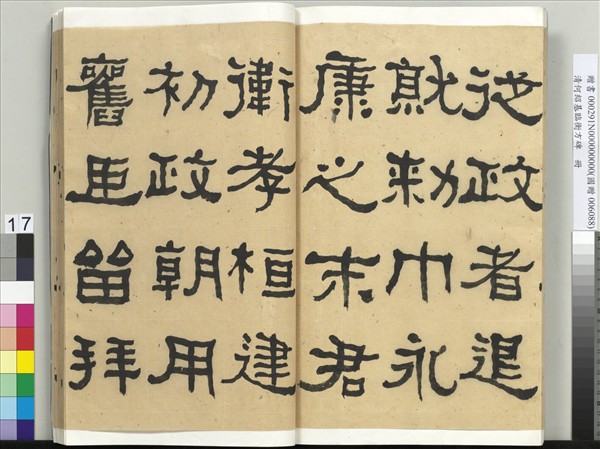 從政者退
就勑巾永
康之末君
衛孝桓建
初政朝用
舊臣留拜
17
贈書 000291N000000000(國贈 006088)
清何紹基臨衡方碑 冊